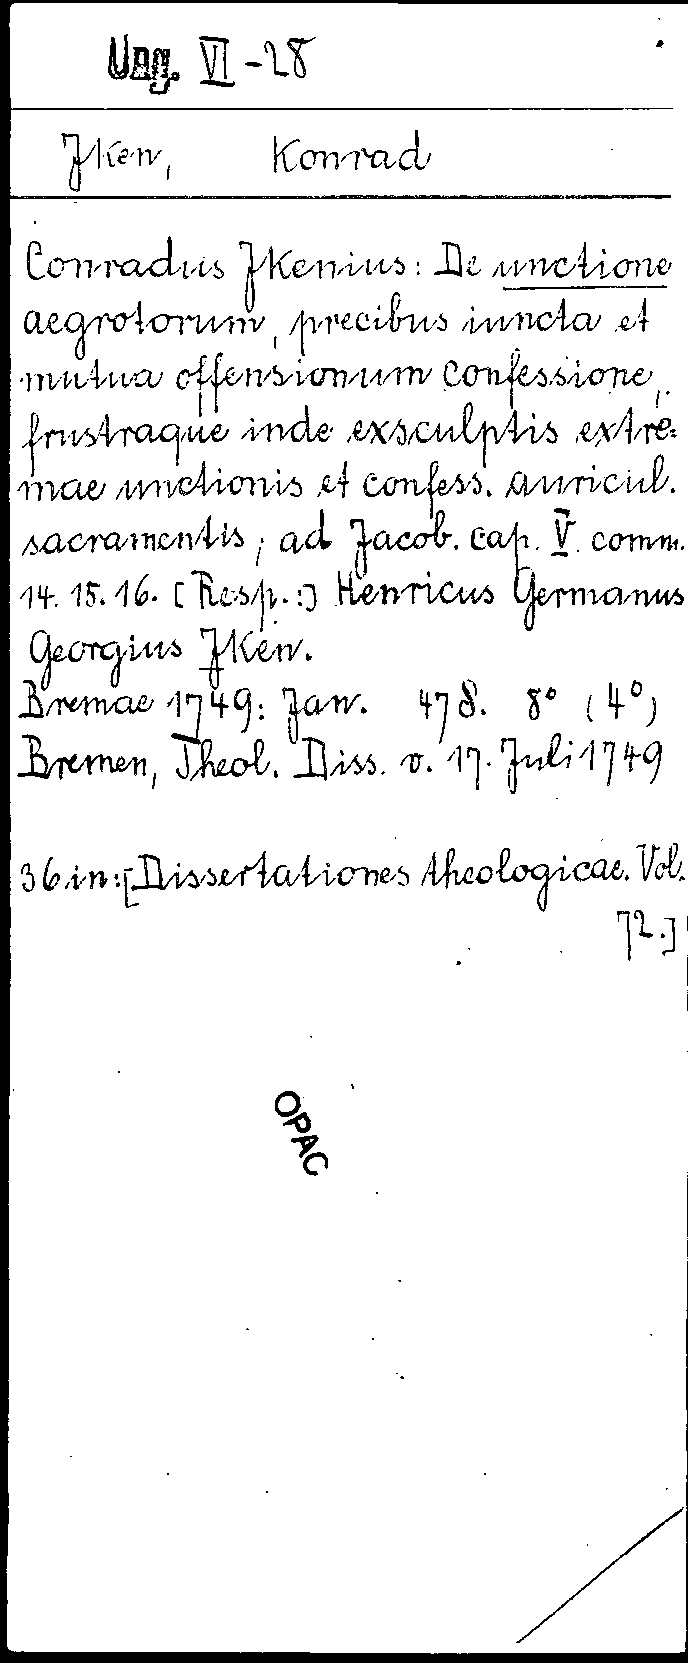 Ung. VI-28
Jken, Konrad
Conradus Jkenius: De unctione
aegrotorum, precibus iuncta et
mutua offensionum confessione,
frustraque inde exsculptis extre=
mae unctionis et confess. auricul.
sacramentis, ad Jacob. cap. V. comm.
14. 15. 16. [Resp.:] Henricus Germanus
Georgius Jken.
Bremae 1749: Jan. 47 S. 8° (4°)
Bremen, Theol. Diss. v. 17. Juli 1749
36 in: [Dissertationes theologicae. Vol.
72.]
OPAC